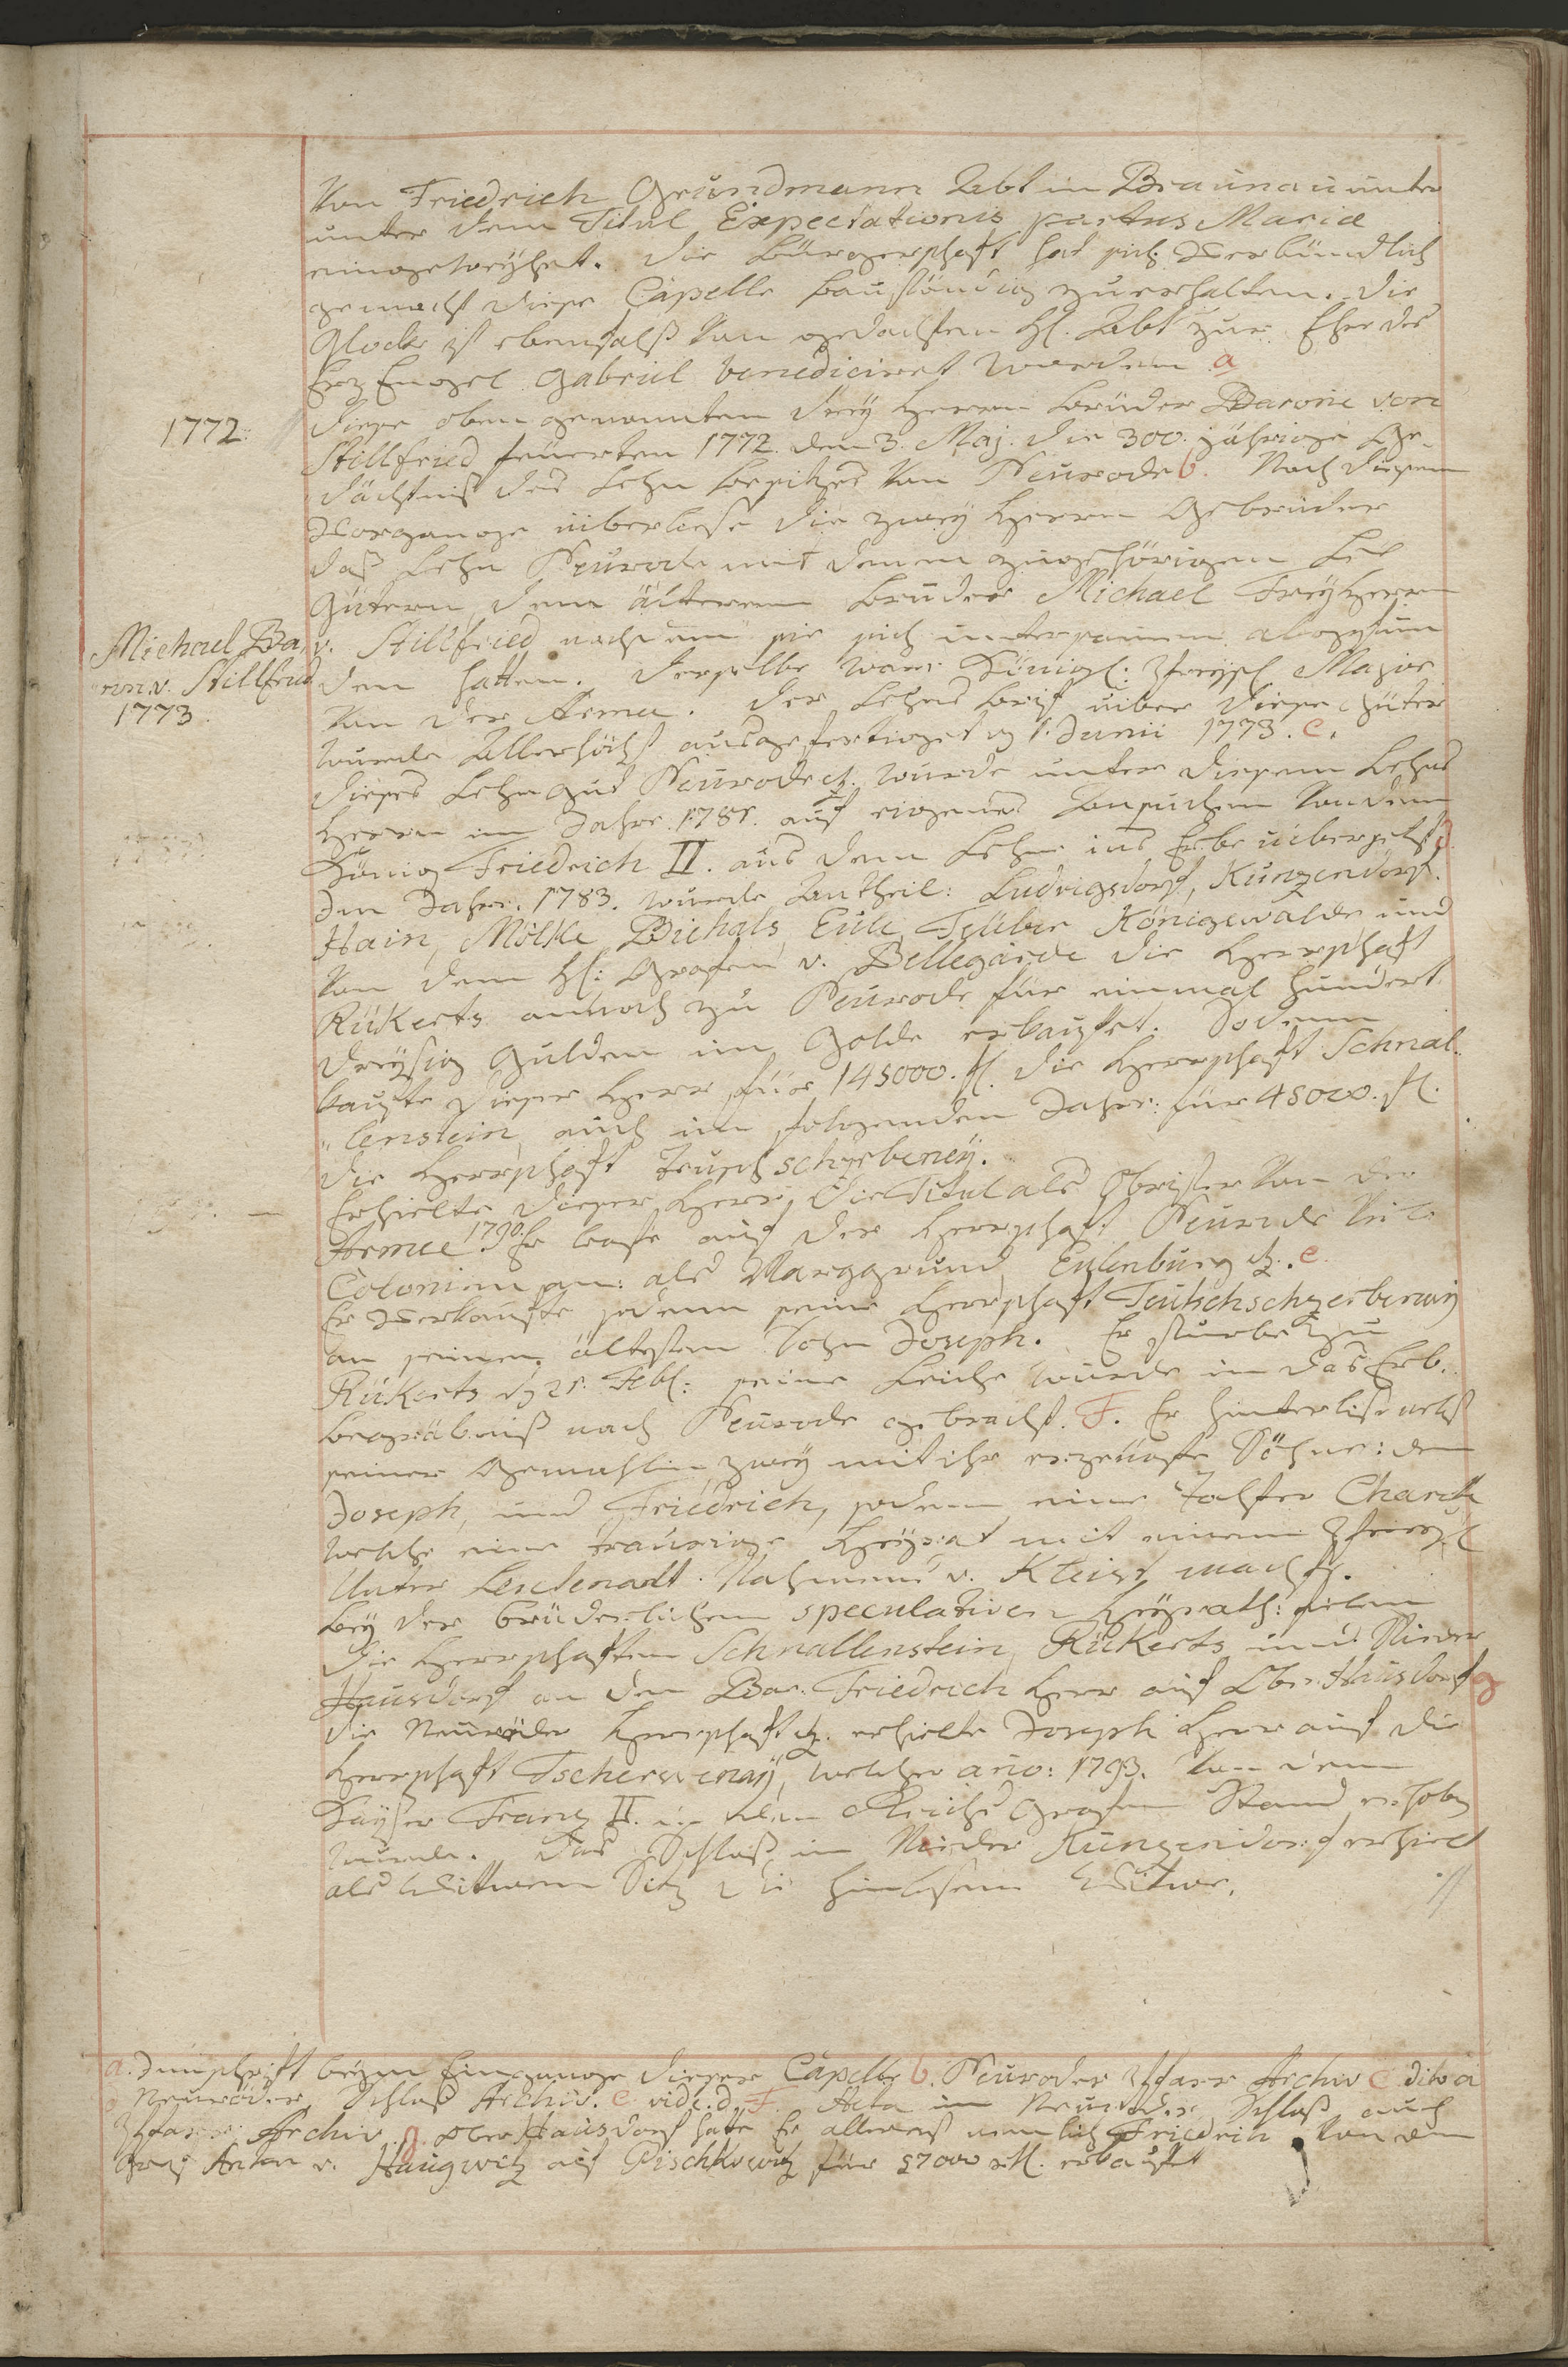 Von Friedrich Grundmann Abt in Braunau unter
unter dem Titul Expectationis partus Mariæ
eingeweÿhet. Die Bürgerschaft hat sich Verbündlich
gemacht diese Capelle bauständig zuerhalten. Die
Glocke ist ebenfalß Von gedachten H. Abt zur Ehre des
ErzEngel Gabriel benediciret worden a
1772.
Diese oben genannten dreÿ Herrn Brüder Barone von
Stillfried feüerten 1772. den 3. Maj. die 300. jährige Ge-
dächtniß des Lehn Besitzes Von Neurode b. Nach diesem
Vorgange überließe die zweÿ Herrn Gebrüder
daß Lehn Neurode mit denen zugehörigen
Gütern dem älteren Bruder Michael FreÿHerrn
Michael Ba-
ron v. Stillfried
1773.
v. Stillfried nachdem sie sich untersamm abgefun
den hatten. Derselbe war Königl: Preÿsl. Major
Von der Armee. Der Lehns Brif über diese Güter
wurde Allerhöchst ausgefertiget d. 1. Junii 1773. c.
Dieses Lehn Gut Neurode wurde unter diesem Lehns
Herrn im Jahre 1781. auf eigenes Ansuchen Von dem
König Friedrich II. aus dem Lehn ins Erbe übersetzt d
Im Jahr. 1783. wurde Antheil: Ludvigsdorf, Kunzendorf.
Hain, Mölke Bichals Eule Felber Königswalde und
Von dem H: Grafen v. Bellegarde die Herrschaft
Rükerts annoch zu Neurode für einmal Hundert
dreÿsig Gulden im Golde erkauffet. Sodenn
kaufte dieser Herr für 145000. fl. die Herrschaft Schnal-
lenstein, auch im folgenden Jahr: für 45000. fl.
die Herrschaft
Erhielte dieser Herr die Titul als Obrister Von der
Armee 1790. Er legte auf der Herrschaft Neurode
Colonien an: als Marggrund, Eulenburg e.
Er Verkaufte sodenn seine Herrschaft
an seinen ältesten Sohn Joseph. Er sturbe zu
Rükerts d. 21. Febr: seine Leiche wurde in das Erb-
begräbniß nach Neurode gebracht. F. Er hinterliße nebst
seiner Gemahlin zweÿ mit ihr erzeügte Söhne: den
Joseph, und Friedrich, sodenn eine Tochter
welche eine traurige Heÿrat mit einem
Unter Leutenadt Nahmens v. Kleist machte.
Beÿ der brüderlichen speculativen Heÿrath: fielen
die Herrschaften Schnallenstein, Rükerts und Nieder
Hausdorf an den Bar. Friedrich Herr auf Ober Hausdorf g
die Neuröder Herrschaft erhielte Joseph Herr auf die
Herrschaft Tscherweneÿ, welcher ano: 1793. Von dem
Kaÿser Franz II. in den Reichs Grafen Stand erhoben
wurde. Das Schloß in Nieder Kunzendorf erhielt
als Wittwen Sitz die Wittwe.
a. Innschrift beÿm Eingange dieser Capelle b. Neuroder Pfarr Archiv c dito a
Neuroder Schloß Archiv. e vide. d. F. Acta im Neuroder Schloß auch
Pfarr Archiv. g Ober Hausdorf hatte Er allererst nemlich Friedrich Von dem
Graf Anton v. Haugwitz auf Pischkowitz für 57000 fl. erkauft